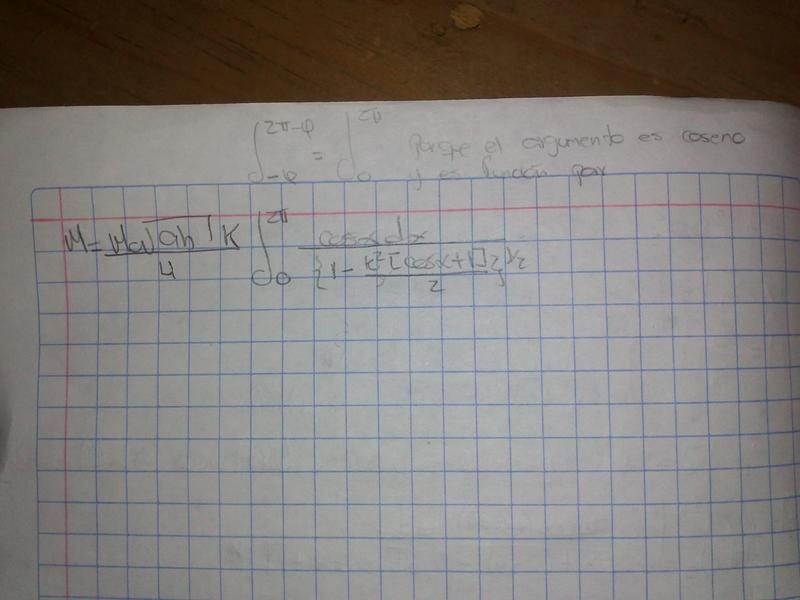 ∫_{-φ}^{2π-φ} = ∫_0^{2π} Porque el argumento es coseno
y es función par
M = μ₀√ab K / 4 ∫_0^{2π} cosα dx / {1 - K²[cosx+1] / 2}^{1/2}